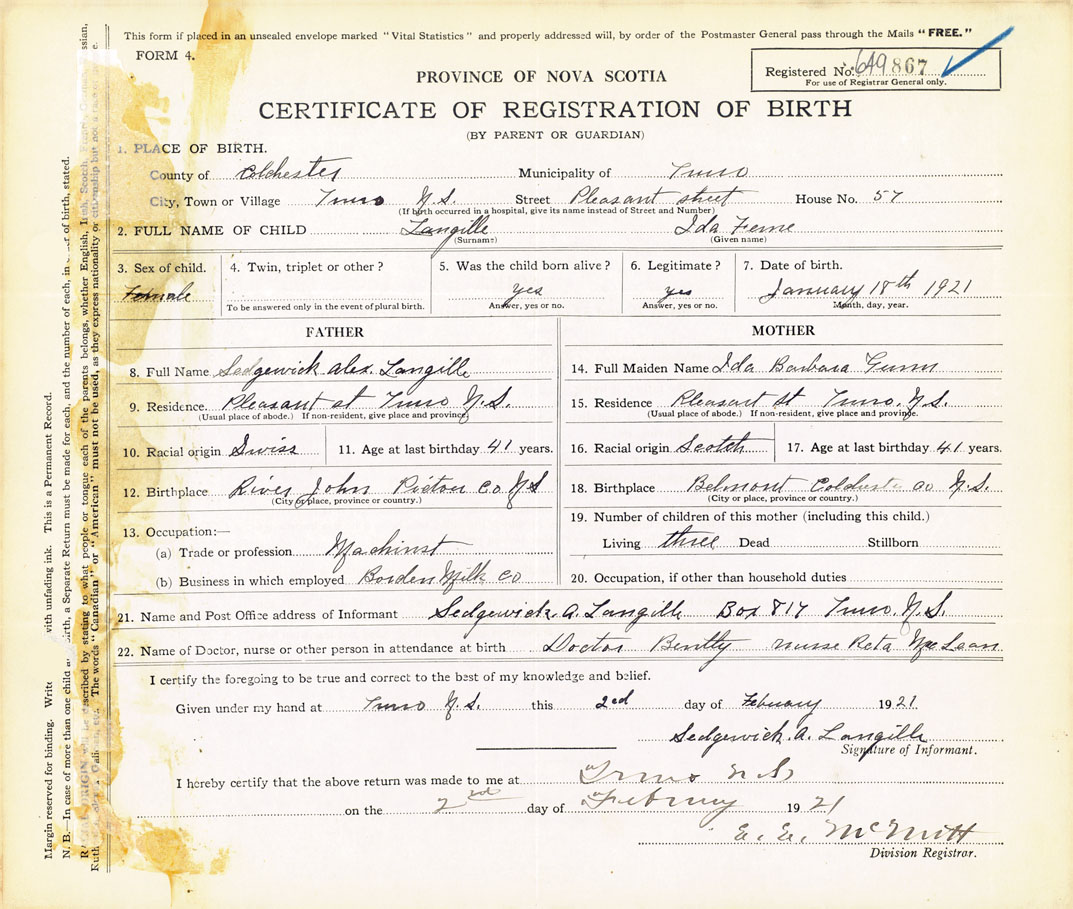 This form if placed in an unsealed envelope marked "Vital Statistics" and properly addressed will, by order of the Postmaster General pass through the Mails "FREE."
FORM 4.
Registered No. 649867
For use of Registrar General only.
PROVINCE OF NOVA SCOTIA
CERTIFICATE OF REGISTRATION OF BIRTH
(BY PARENT OR GUARDIAN)
1. PLACE OF BIRTH.
County of Colchester Municipality of Truro
City, Town or Village Truro N.S. Street Pleasant street House No. 57
(If birth occurred in a hospital, give its name instead of Street and Number)
2. FULL NAME OF CHILD Langille Ida Ferne
(Surname) (Given name)
3. Sex of child. 4. Twin, triplet or other? 5. Was the child born alive? 6. Legitimate? 7. Date of birth.
Female yes yes January 18th 1921
To be answered only in the event of plural birth. Answer, yes or no. Answer, yes or no. Month, day, year.
FATHER
8. Full Name Sedgewick alex. Langille
9. Residence. Pleasant st Truro N.S.
(Usual place of abode.) If non-resident, give place and province.
10. Racial origin Swiss 11. Age at last birthday 41 years.
12. Birthplace River John Pictou Co N S
(City or place, province or country.)
13. Occupation:—
(a) Trade or profession Machinst
(b) Business in which employed Borden Milk Co
MOTHER
14. Full Maiden Name Ida Barbara Gunn
15. Residence Pleasant St Truro. N.S.
(Usual place of abode.) If non-resident, give place and province.
16. Racial origin Scotch 17. Age at last birthday 41 years.
18. Birthplace Belmont Colchester Co N.S.
(City or place, province or country.)
19. Number of children of this mother (including this child.)
Living three Dead Stillborn
20. Occupation, if other than household duties
21. Name and Post Office address of Informant Sedgewick. A. Langille Box 817 Truro. N.S.
22. Name of Doctor, nurse or other person in attendance at birth Doctor Bently nurse Reta MacLean
I certify the foregoing to be true and correct to the best of my knowledge and belief.
Given under my hand at Truro N.S. this 2ed day of February 1921
Sedgewick. A. Langille
Signature of Informant.
I hereby certify that the above return was made to me at Truro N.S.
on the 2nd day of February 1921
E. E. McNutt
Division Registrar.
Margin reserved for binding. Write with unfading ink. This is a Permanent Record.
N. B.—In case of more than one child at birth, a Separate Return must be made for each, and the number of each, in order of birth, stated.
ORIGIN described by stating to what people or tongue each of the parents belongs, whether English, Irish, Scotch,
The words "Canadian" or "American" must not be used, as they express nationality or citizenship but not a